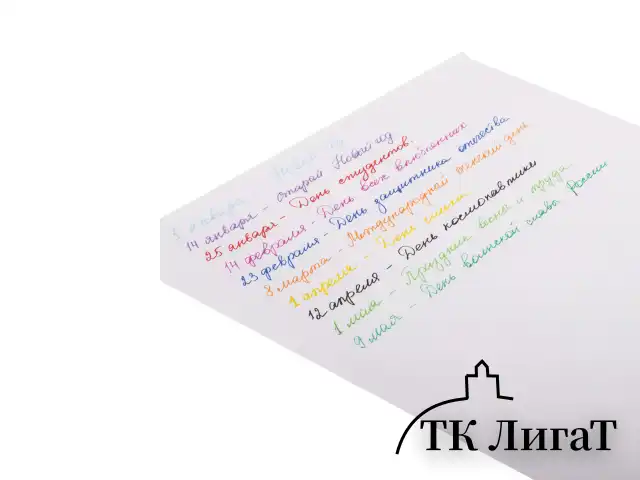 1 января - Новый год
14 января - старый Новый год
25 января - День студентов.
14 февраля - День всех влюблённых
23 февраля - День защитника отечества
8 марта - Международный женский день
1 апреля - День смеха
12 апреля - День космонавтики
1 мая - Праздник весны и труда
9 мая - День воинской славы России
ТК ЛигаТ